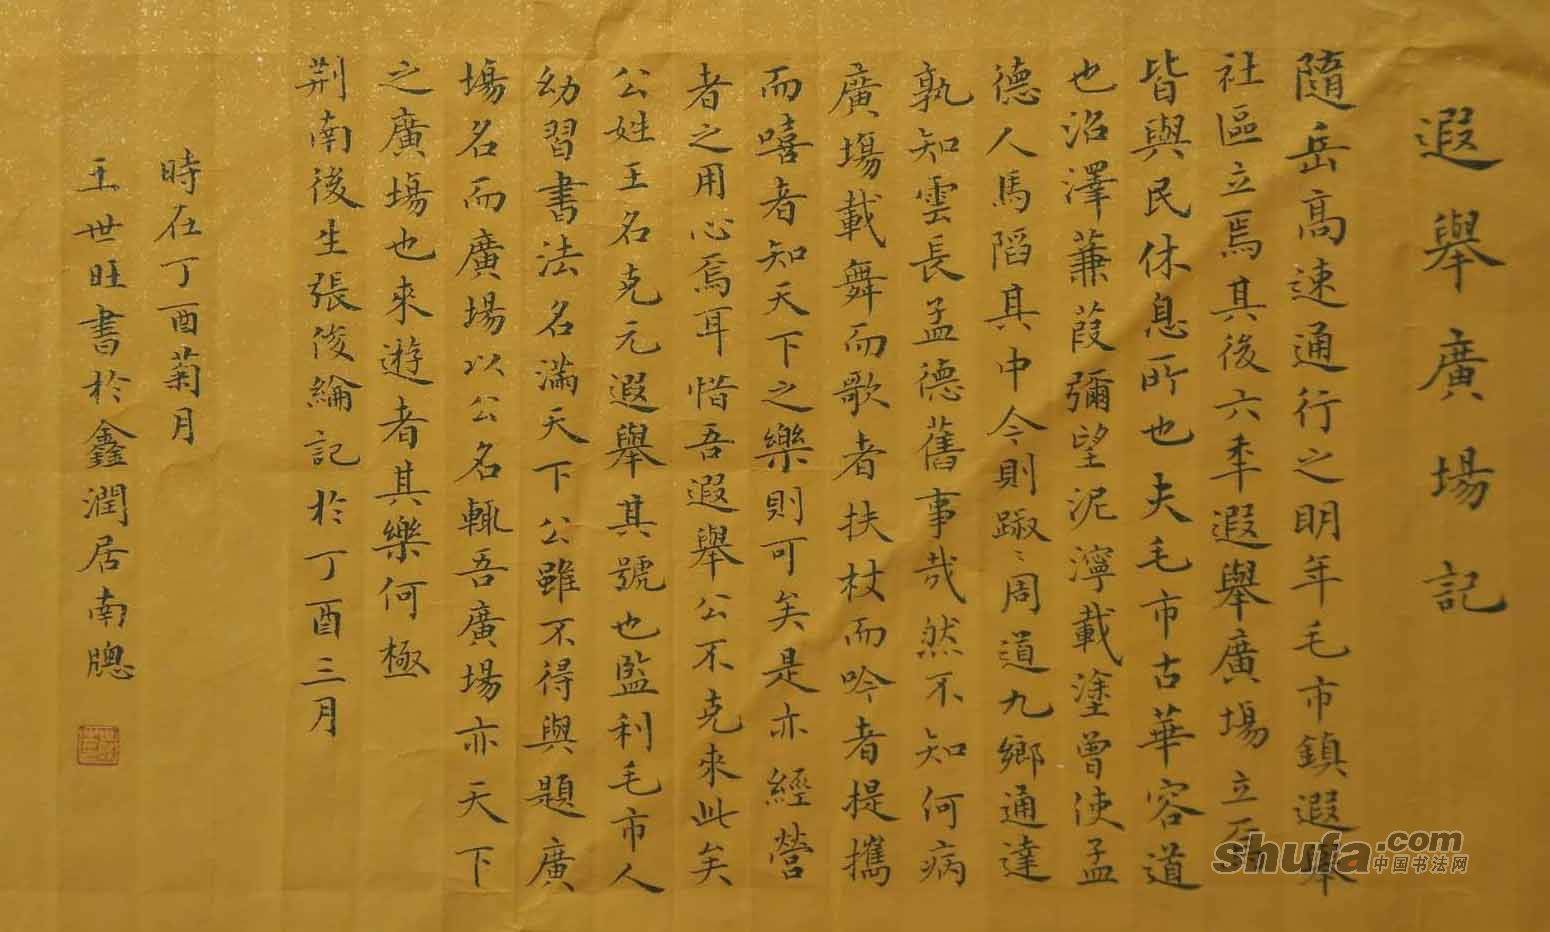 遐舉廣場記
隨岳高速通行之明年毛市鎮遐舉
社區立焉其後六秊遐舉廣塲立
皆與民休息所也夫毛市古華容道
也沼澤蒹葭彌望泥濘載塗曾使孟
德人馬蹈其中今則踧〻周道九鄉通達
孰知雲長孟德舊事哉然不知何病
廣塲載舞而歌者扶杖而吟者提攜
而嘻者知天下之樂則可矣是亦經營
者之用心焉耳惜吾遐舉公不克來此矣
公姓王名克元遐舉其號也監利毛市人
幼習書法名滿天下公雖不得與題廣
塲名而廣場以公名輒吾廣場亦天下
之廣塲也來遊者其樂何極
荊南後生張俊綸記於丁酉三月
時在丁酉菊月
王世旺書於鑫潤居南牕
shufa.com
中国书法网